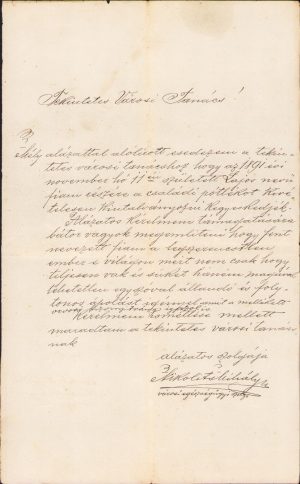 Tekintetes Városi Tanács!
Mély alázattal alólirott esedezem a tekin-
tetes városi tanácshoz hogy az 1891 évi
november hó 11én született Lajos nevü
fiam részére a családi pótlékot kivé-
telesen kiutalványozni kegyeskedjék.
Alázatos kérelmem támogatására
bátor vagyok megemliteni hogy fent
nevezett fiam a legszerencsétlen
ember e világon mert nem csak hogy
teljesen vak és süket hanem magával
tehetetlen egyszóval állandó és foly-
tonos ápolást igényel amit a mellékelt
orvosi bizonyitvány igazol
Kérelmem ismétlése mellett
maradtam a tekintetes városi tanács-
nak
alázatos szolgája
Mihály
városi